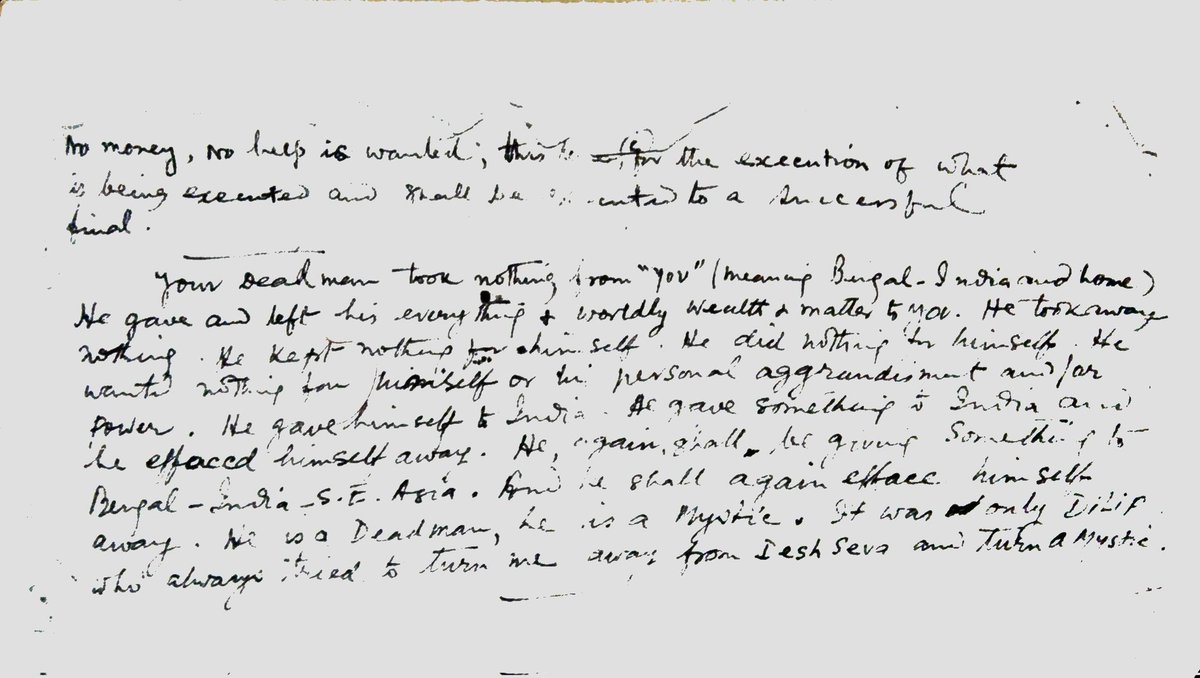 No money, No help is wanted; this is (is) for the execution of what
is being executed and shall be executed to a successful
final.
Your Dead man took nothing from "you" (meaning Bengal-India and home)
He gave and left his everything & worldly wealth & matter to you. He took away
nothing. He kept nothing for himself. He did nothing for himself. He
wanted nothing for himself or his personal aggrandisment and/or
power. He gave himself to India. He gave something to India and
he effaced himself away. He, again, shall be giving something to
Bengal-India-S.E. Asia. And he shall again efface himself
away. He is a Dead man, he is a Mystic. It was only DiLiP
who always tried to turn me away from Desh Seva and turn a Mystic.